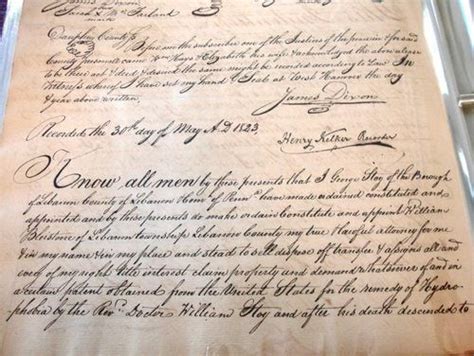 James Dixon
Sarah X McFarland
mark
Dauphin County Ss
Before me the subscriber one of the Justices of the peace in & for said
County personally came Hays & Elizabeth his wife & acknowledged the above
to be their act & deed & desired the same might be recorded according to Law In
Witness whereof I have set my hand & Seal at West Hanover the day
& year above written
James Dixon
Recorded the 30th day of May A.D 1823.
Henry Kelker Recorder
Know all men by these presents that I George Stoy of the Borough
of Lebanon County of Lebanon & of Penna have made ordained constituted and
appointed and by these presents do make ordain Constitute and appoint William
of Lebanon township Lebanon County my true & lawful attorney for me
& in my name & in my place and stead to sell dispose off transfer & assign all and
every of my right title interest claim property and demand whatsoever of and in
a certain patent obtained from the United States for the remedy of Hydro-
phobia by the Revd. Doctor William Stoy and after his death descended to